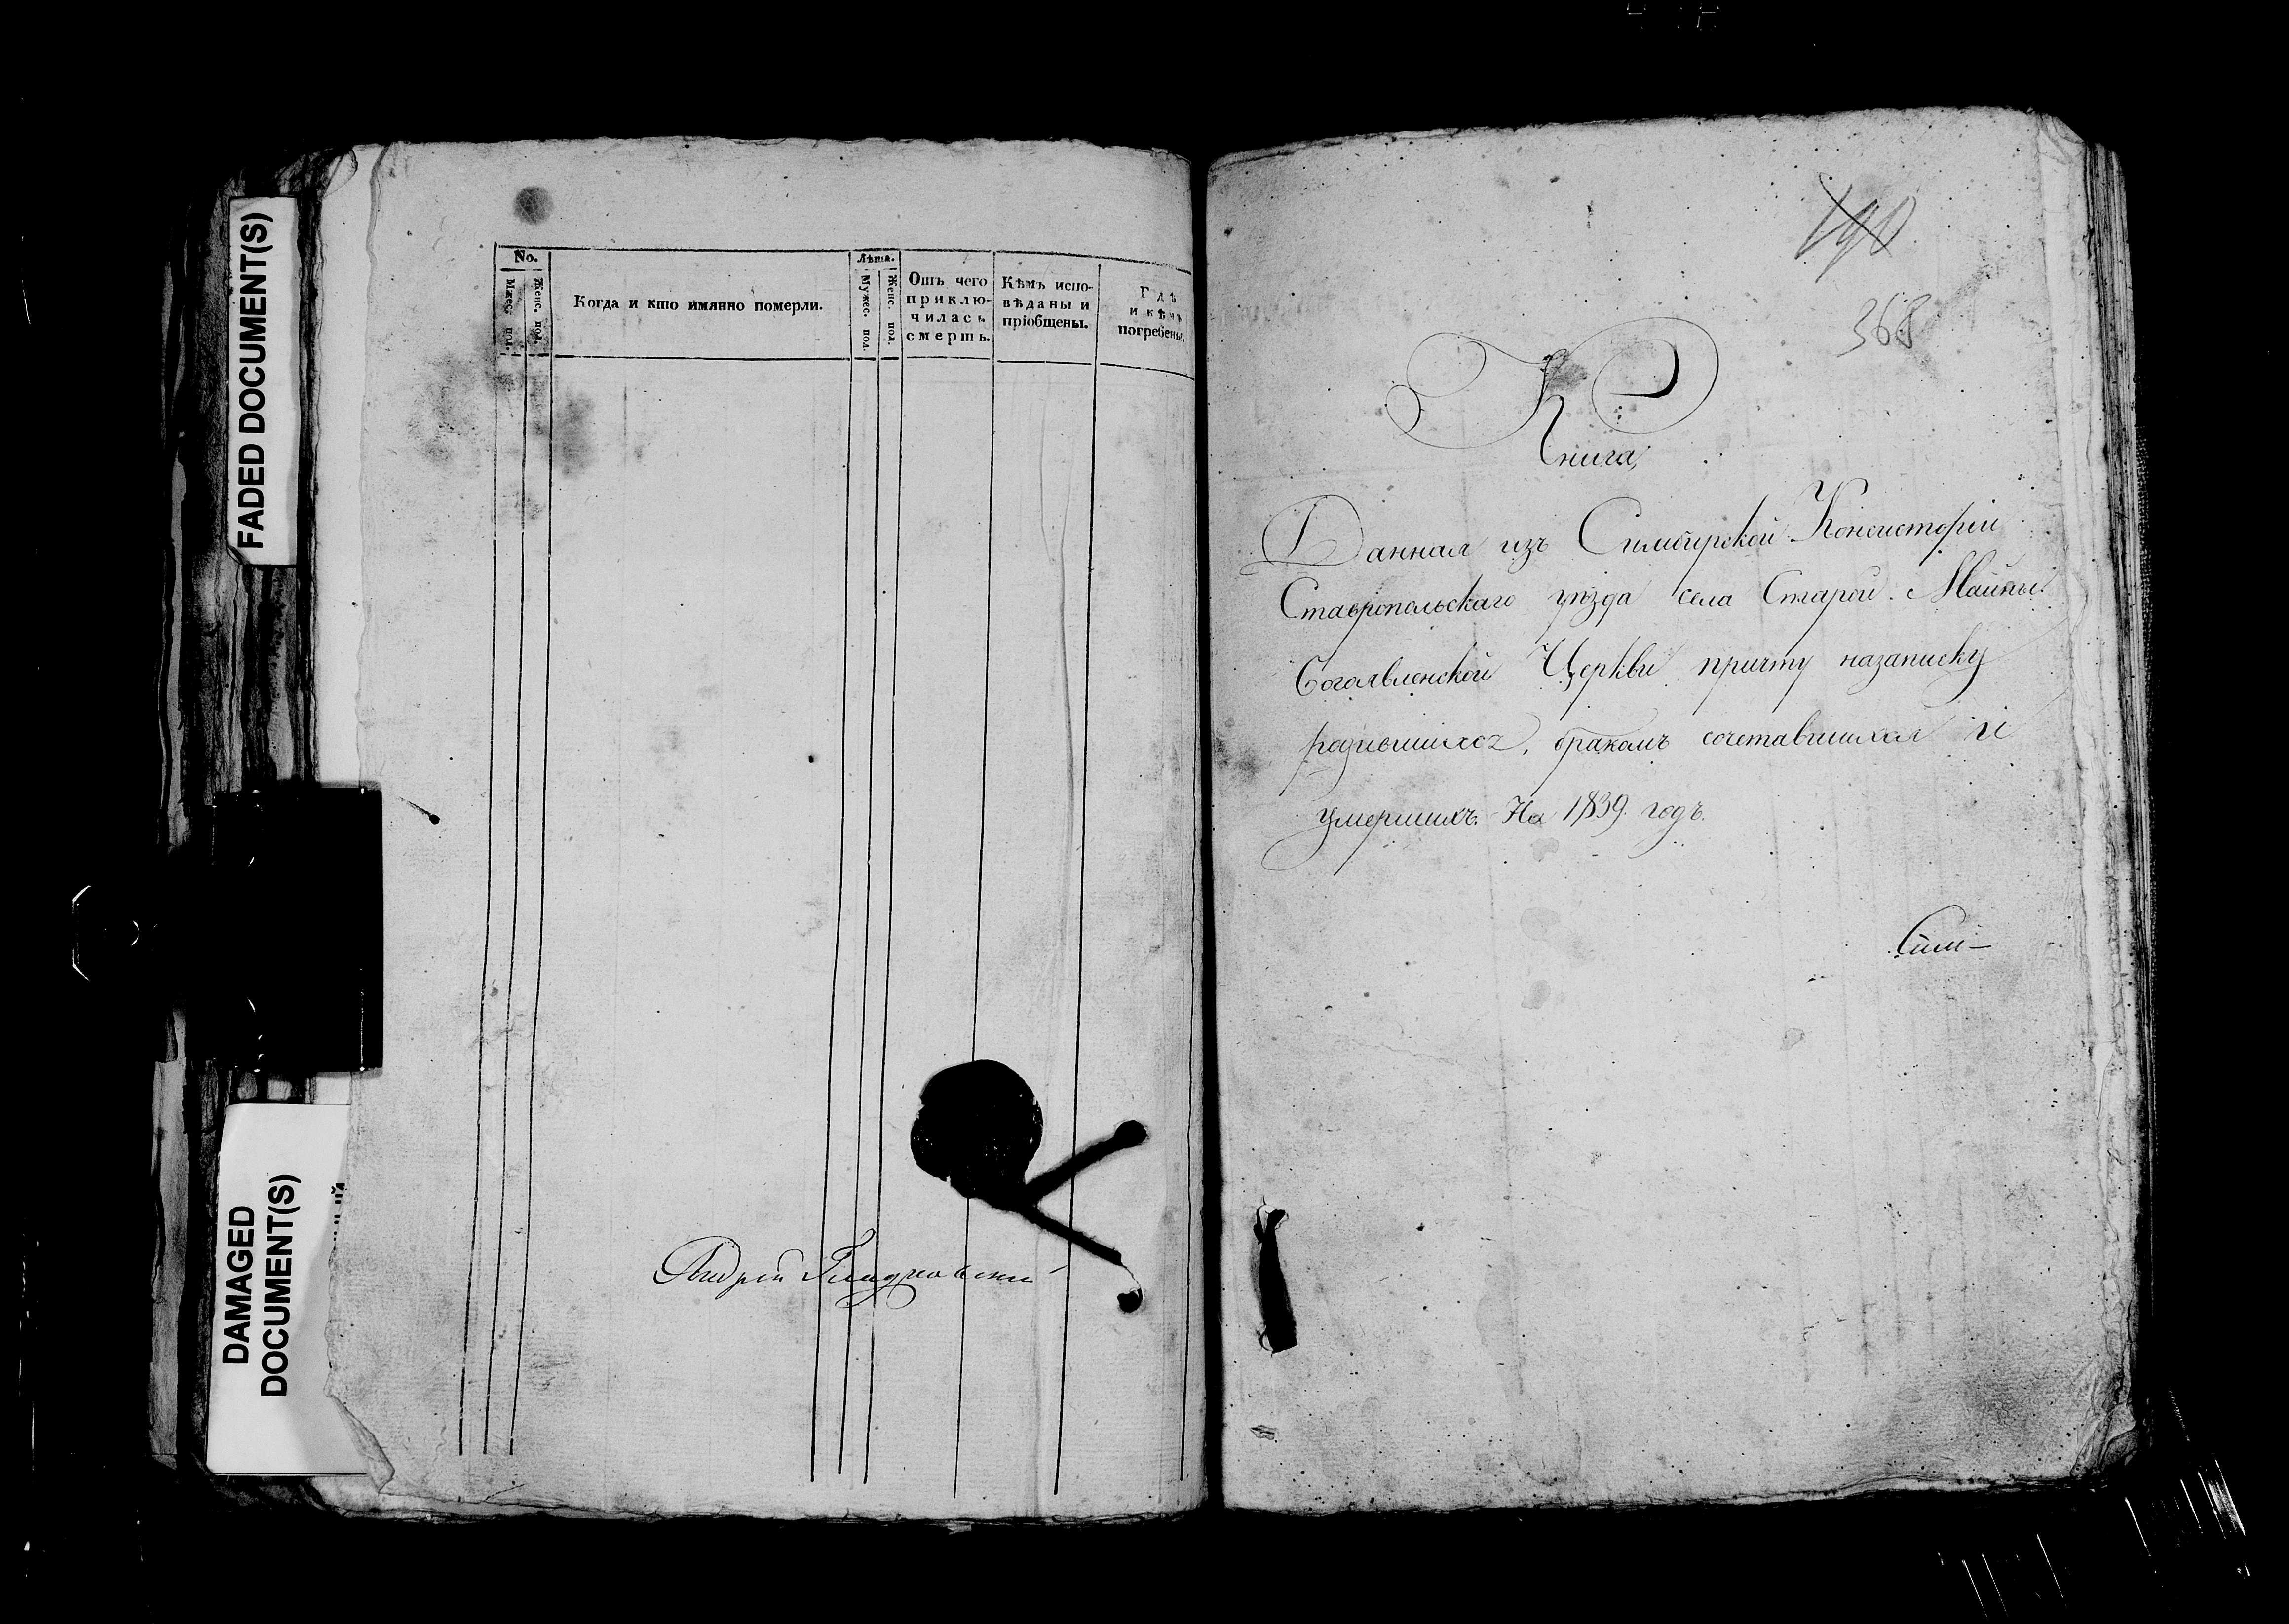 FADED DOCUMENT(S)
DAMAGED
DOCUMENT(S)
No.
Мжес. пол.
Женс. пол.
Когда и кто имянно померли.
Лѣта.
Мужес. пол.
Женс. пол.
Отъ чего
приклю-
чилась
смерть.
Кѣмъ испо-
вѣданы и
пріобщены.
Гдѣ
и кѣмъ
погребены.
Андрей
190
368
Книга,
Данная изъ Симбирской Консисторіи
Ставропольскаго уѣзда села Старой Майны
Богоявленской Церкви причту назаписку
родившихся, бракомъ сочетавшихся и
умершихъ. На 1839. годъ.
Сим-